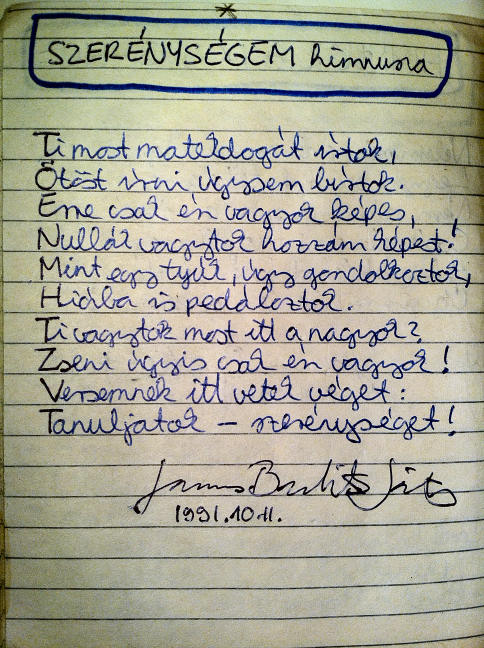 *
SZERÉNYSÉGEM himnusza
Ti most matekdogát írtok,
Ötöst írni úgysem bírtok.
Erre csak én vagyok képes,
Nullák vagytok hozzám képest!
Mint egy tyúk, úgy gondolkoztok,
Hiába is pedáloztok.
Ti vagytok most itt a nagyok?
Zseni úgyis csak én vagyok!
Versemnek itt vetek véget:
Tanuljatok – szerénységet!
1991.10.11.